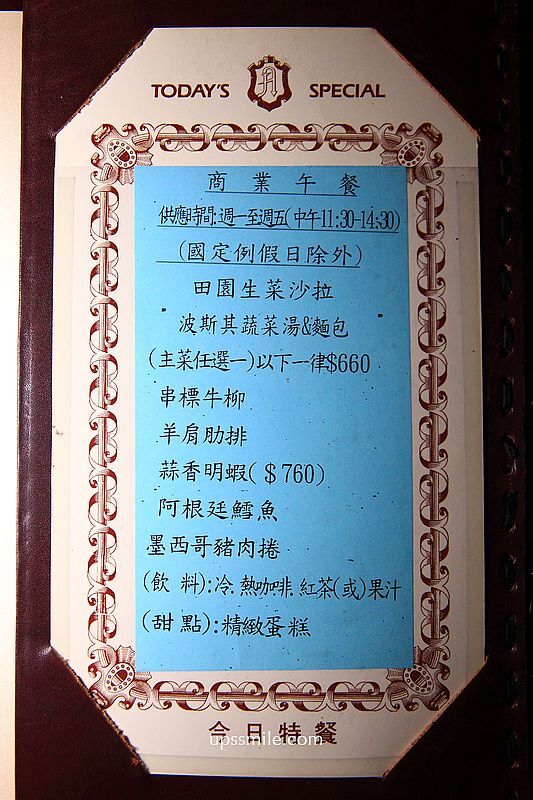 TODAY'S A SPECIAL
商業午餐
供應時間:週一至週五(中午11:30-14:30)
(國定例假日除外)
田園生菜沙拉
波斯其蔬菜湯&麵包
(主菜任選一)以下一律$660
串標牛柳
羊肩肋排
蒜香明蝦($760)
阿根廷鱈魚
墨西哥豬肉捲
(飲 料):冷.熱咖啡.紅茶(或)果汁
(甜 點):精緻蛋糕
今日特餐
upssmile.com